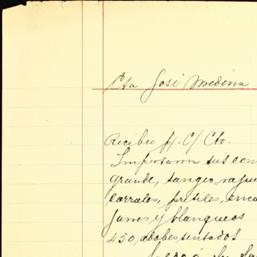 Cta José Medina
Recibio p/. C/ Cta.
Importaron sus com
grande, sangeo, rajue
corrales, pretiles, enca
Janes y blanqueos
450, adobes, sentados